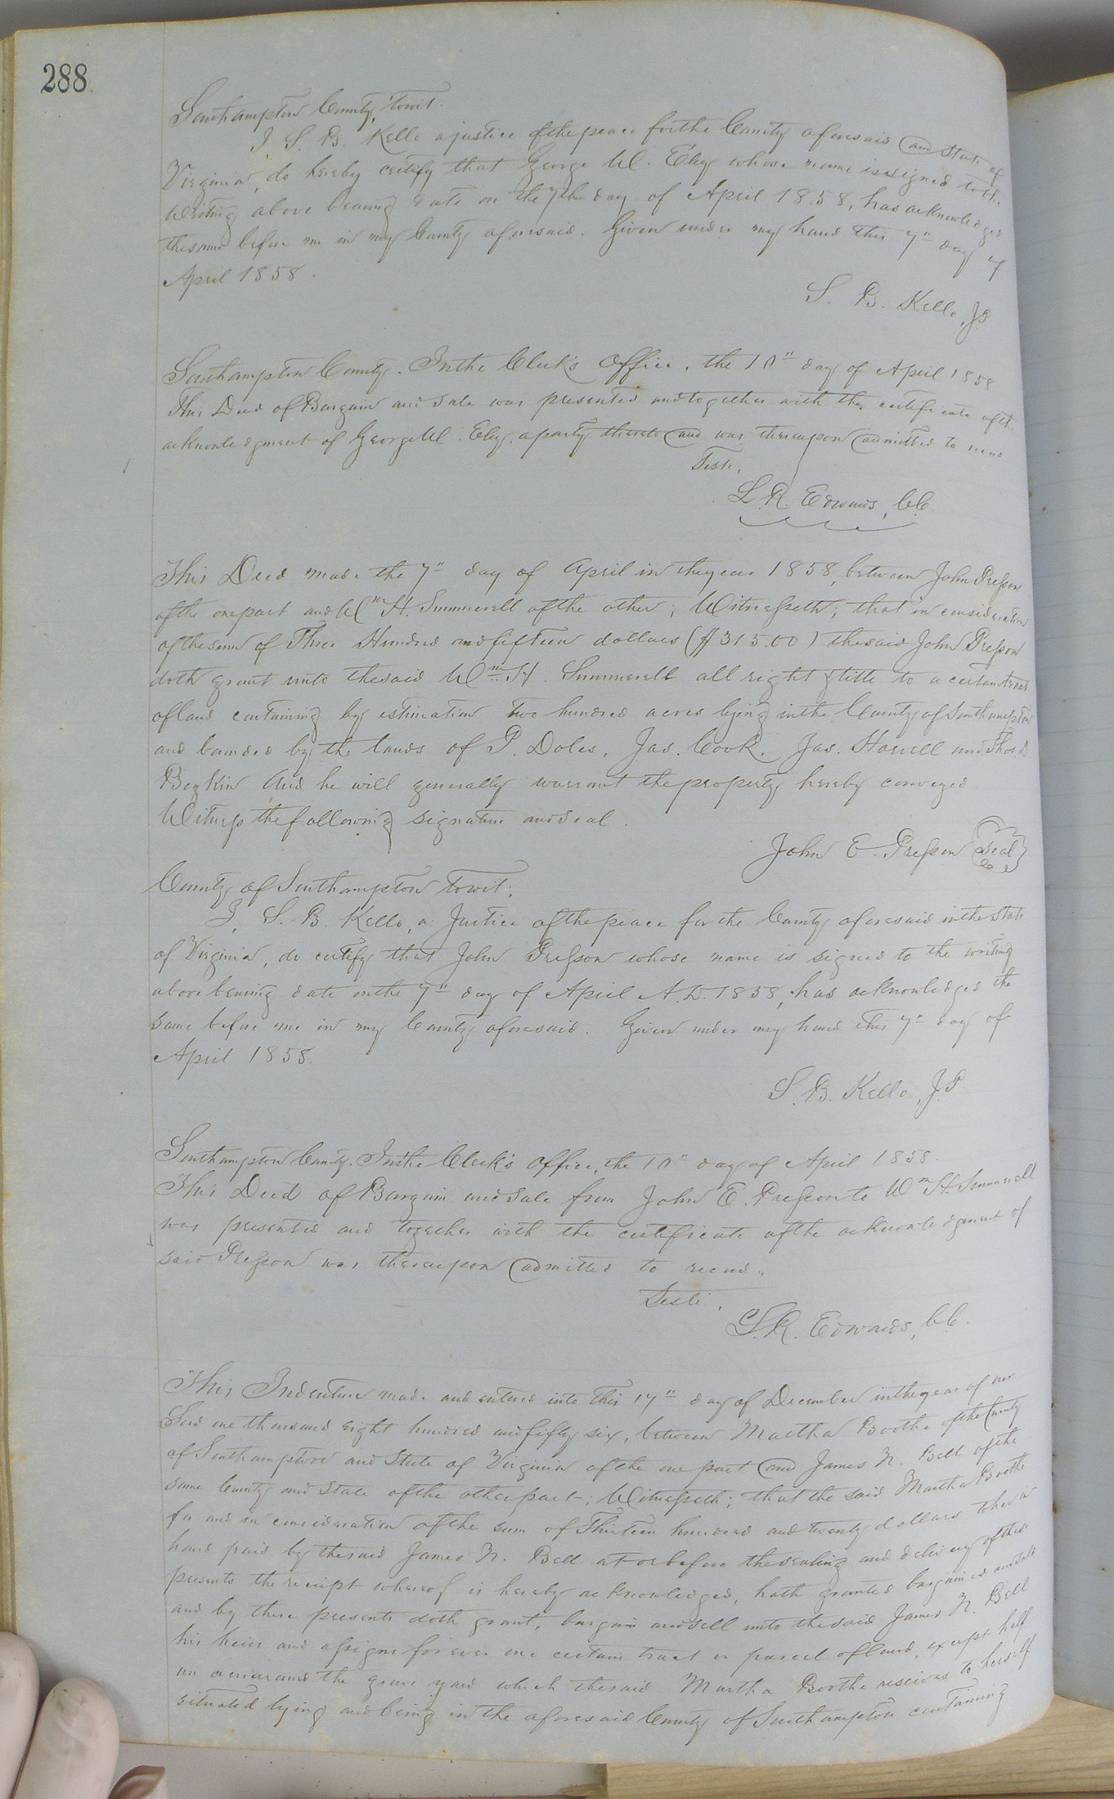 288
Southampton County, towit:
I S. B. Kello a justice of the peace for the County aforesaid and State of
Virginia, do hereby certify that George W. Eley whose name is signed to the
writing above bearing date on the 7th day of April 1858, has acknowledged
the same before me in my County aforesaid. Given under my hand this 7" day of
April 1858.
S. B. Kello, JP
Southampton County. In the Clerk's Office, the 10" day of April 1858
This Deed of Bargain and Sale was presented and together with the certificate of the
acknowledgment of George W. Eley, a party thereto and was thereupon admitted to
Teste,
L. R. Edwards, CC.
This Deed made the 7" day of April in the year 1858, between John Presson
of the one part and Wm H Summerell of the other; Witnesseth; that in consideration
of the sum of Three Hundred and fifteen dollars ($315.00) the said John Presson
doth grant unto the said Wm H. Summerell all right & title to a certain tract
of land containing by estimation two hundred acres lying in the County of Southampton
and bounded by the lands of P. Doles, Jas. Cook, Jas. Howell and Thos.
And he will generally warrant the property hereby conveyed
Witness the following signature and seal.
John E. Presson {Seal}
County of Southampton towit;
I, S. B. Kello, a Justice of the peace for the County aforesaid in the State
of Virginia, do certify that John Presson whose name is signed to the writing
above bearing date on the 7" day of April A.D. 1858, has acknowledged the
same before me in my County aforesaid. Given under my hand this 7" day of
April 1858.
S. B. Kello, J.P
Southampton County. In the Clerk's Office, the 10" day of April 1858
This Deed of Bargain and Sale from John E. Presson to Wm H. Summerell
was presented and together with the certificate of the acknowledgment of
said Presson was thereupon admitted to record.
Teste,
L. R. Edwards, CC.
This Indenture made and entered into this 17" day of December in the year of our
Lord one thousand eight hundred and fifty six, between Martha Boothe of the County
of Southampton and State of Virginia of the one part and James N. Bell of the
same County and State of the other part; Witnesseth; that the said Martha Boothe
for and in consideration of the sum of Thirteen hundred and twenty dollars to her in
hand paid by the said James N. Bell at or before the sealing and delivery of these
presents the receipt whereof is hereby acknowledged, hath granted bargained and sold
and by these presents doth grant, bargain and sell unto the said James N. Bell
his heirs and assigns forever one certain tract or parcel of land, except half
an acre around the grave yard which the said Martha Boothe reserves to herself
situated lying and being in the aforesaid County of Southampton containing